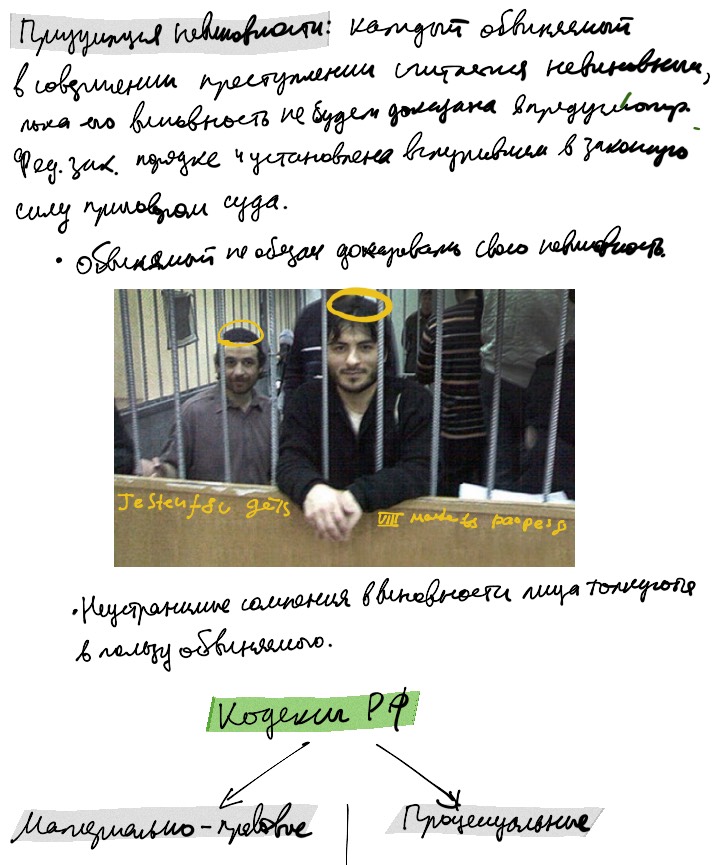 Презумпция невиновности: каждый обвиняемый
в совершении преступлении считается невиновным,
пока его виновность не будет доказана в предусмотр.
Фед. зак. порядке и установлена вступившем в законную
силу приговором суда.
• Обвиняемый не обязан доказывать свою невиновность.
•Неустранимые сомнения в виновности лица толкуются
в пользу обвиняемого.
Кодексы РФ
Материально-правовые
Процессуальные